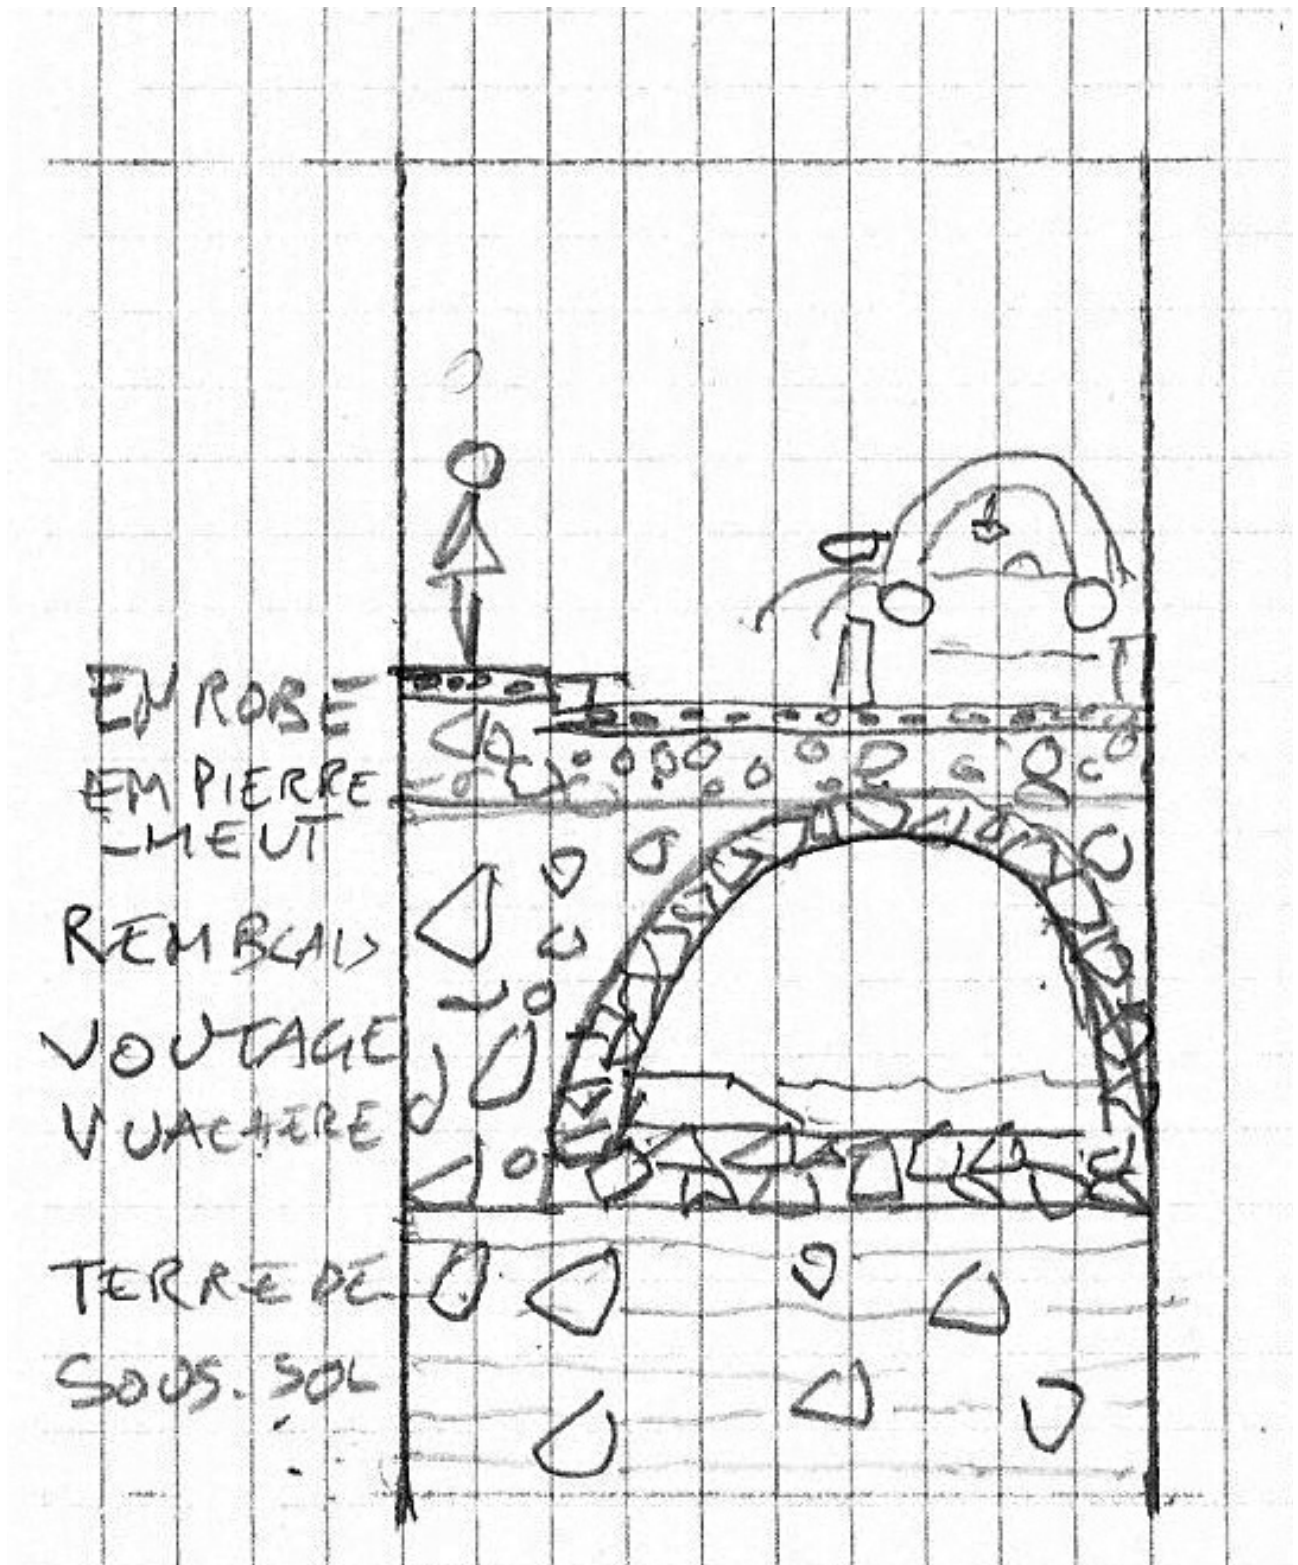 ENROBE
EMPIERRE
-MENT
REMBLAIS
VOUTAGE
VUACHERE
TERRE DE
SOUS-SOL